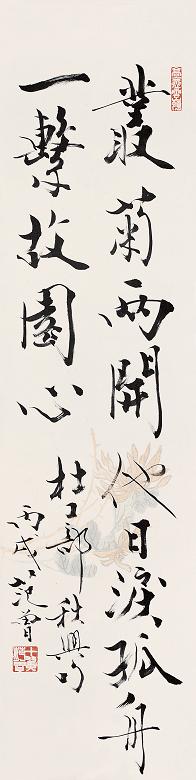 叢菊兩開他日淚孤舟
一繫故園心
杜工部秋興句
丙戌范曾